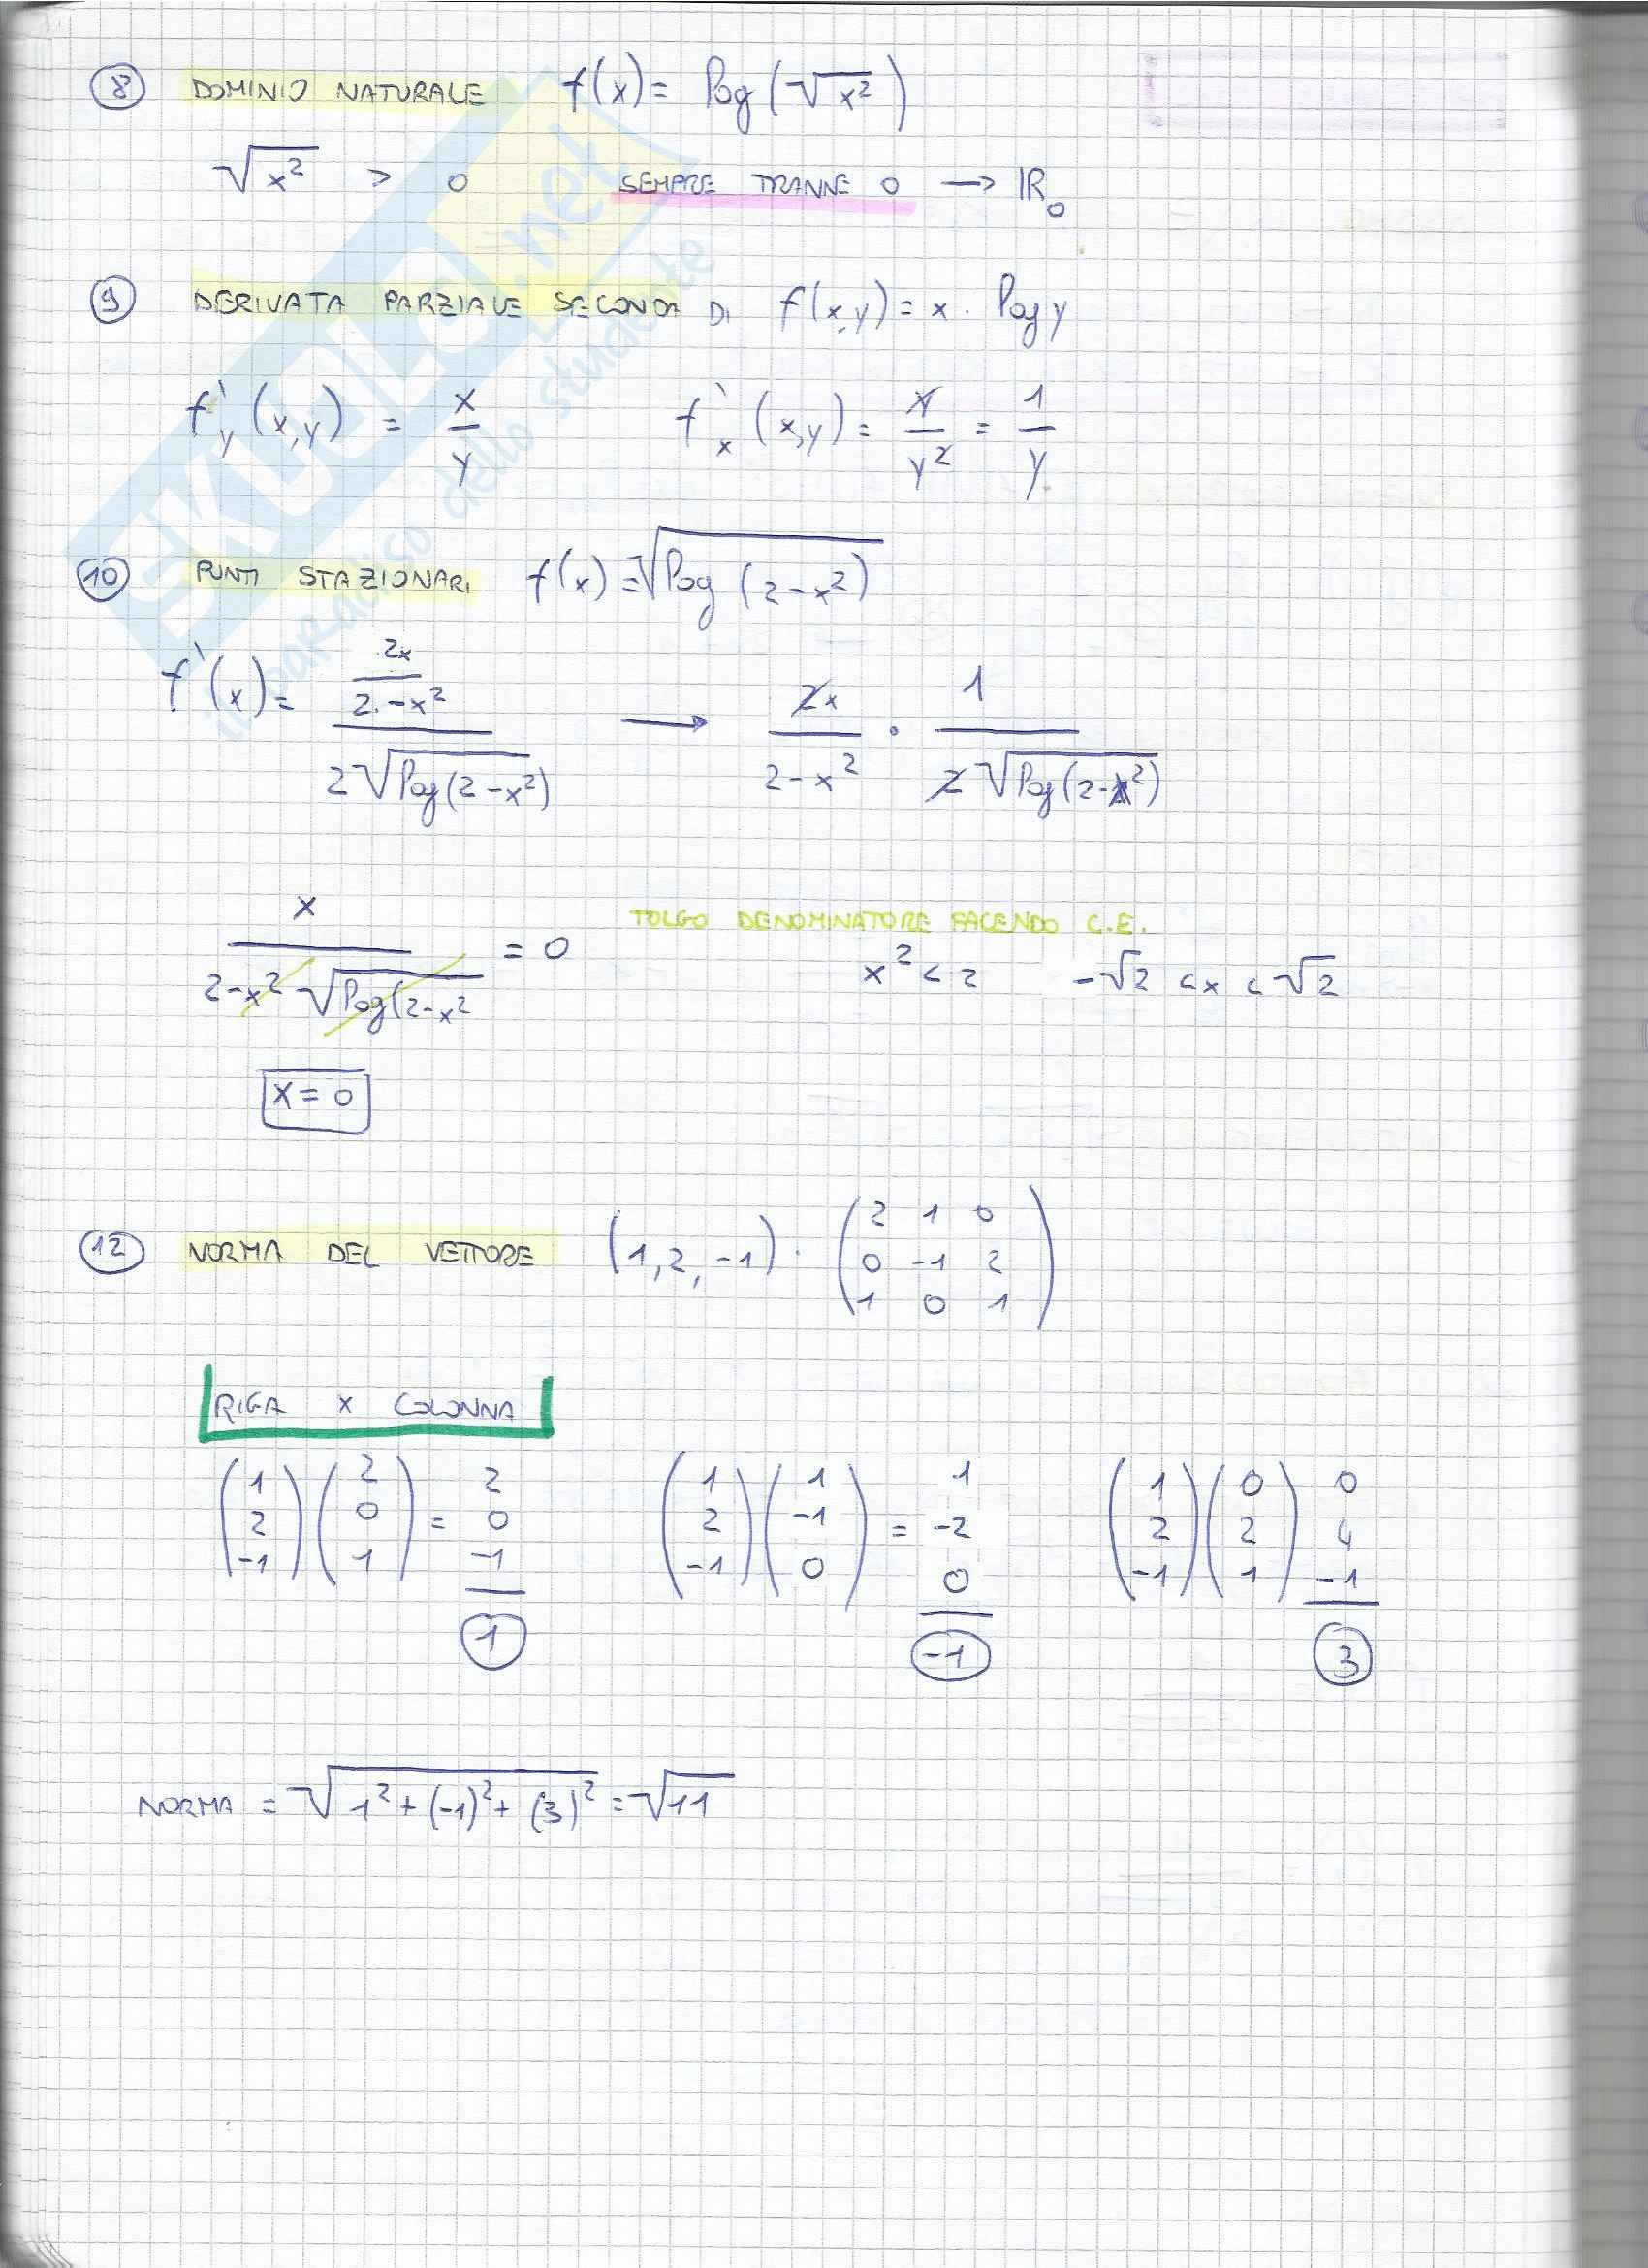 8 DOMINIO NATURALE f(x) = log(√x²)
√x² > 0 SEMPRE TRANNE 0 → ℝ₀
9 DERIVATA PARZIALE SECONDA DI f(x,y) = x · log y
f'y (x,y) = x/y f'x (x,y) = y/y² = 1/y
10 PUNTI STAZIONARI f(x) = √log (2-x²)
f'(x) = (2x/(2-x²))/(2√log(2-x²)) → 2x/(2-x²) · 1/(2√log(2-x²))
x/(2-x² √log(2-x²) = 0 TOLGO DENOMINATORE FACENDO C.E.
x² < 2 -√2 < x < √2
x = 0
12 NORMA DEL VETTORE (1, 2, -1) · (2 1 0
0 -1 2
1 0 1)
RIGA x COLONNA
(1 (2 = 2 (1 (1 = 1 (1 (0 0
2 0 0 2 -1 -2 2 2 4
-1) 1) -1 -1) 0) 0 -1) 1) -1
1 -1 3
NORMA = √1² + (-1)² + (3)² = √11
SKUOLA.net
il paradiso dello studente